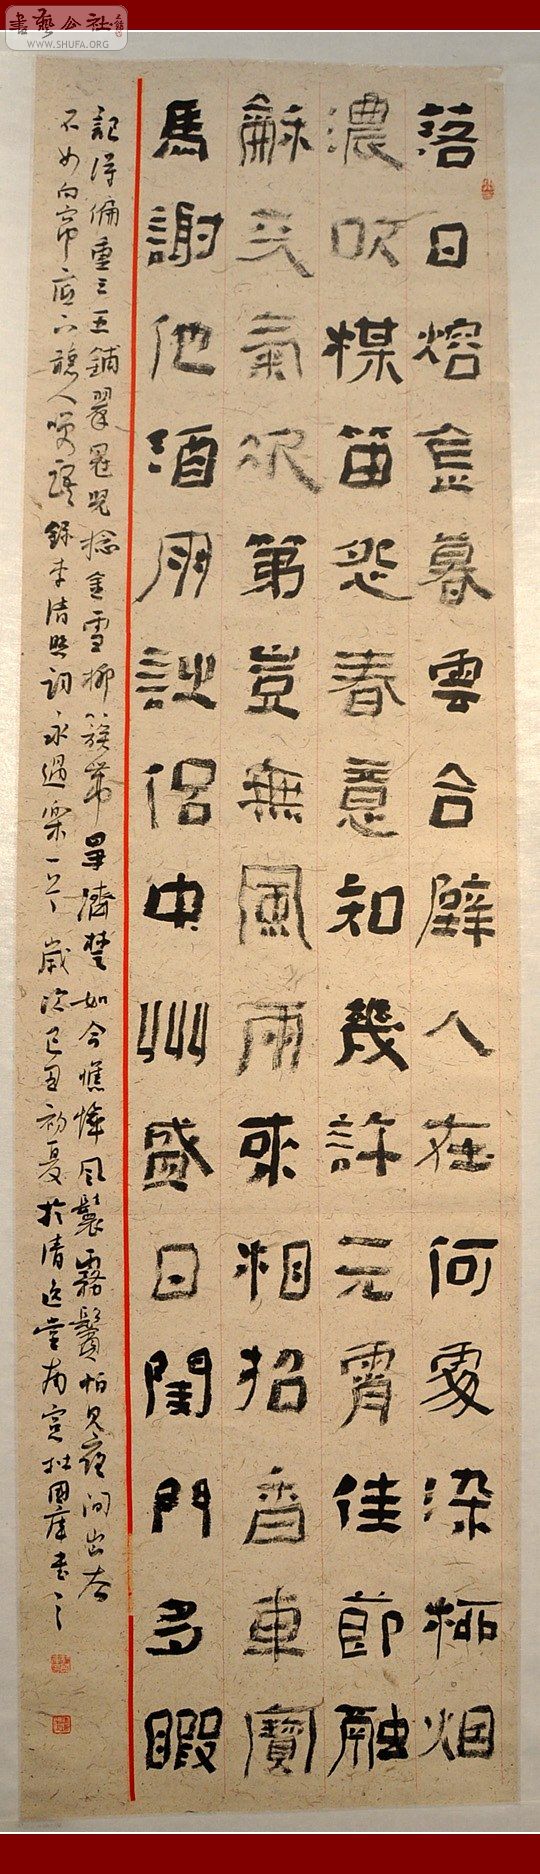 書藝公社
WWW.SHUFA.ORG
落日熔金暮雲合璧人在何處染柳烟
濃吹楳笛怨春意知幾許元宵佳節融
龢天氣次第豈無風雨來相招香車寶
馬謝他酒朋詩侶中州盛日閨門多暇
記得偏重三五鋪翠冠兒捻金雪柳簇帶爭濟楚如今憔悴風鬟霧鬢怕見夜間出去
不如向帘底下聽人笑語錄李清照詞永遇樂一首歲次己丑初夏於清逸堂南窗杜國庠書之